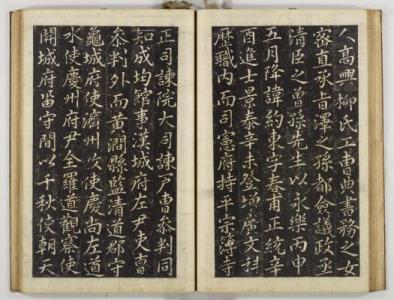 人高興柳氏工曹典書務之女
密直承旨澤之孫都僉議政丞
清臣之曾孫先生以永樂丙申
五月降諱約東字春甫正統辛
酉進士景泰辛未登增廣文科
歷職內而司憲府持平宗簿寺
正司諫院大司諫戶曹叅判同
知成均館事漢城府左尹吏曹
叅判外而黃澗縣監清道郡守
龜城府使濟州牧使慶尚左道
水使慶州府尹全羅道觀察使
開城府留守間以千秋使朝天